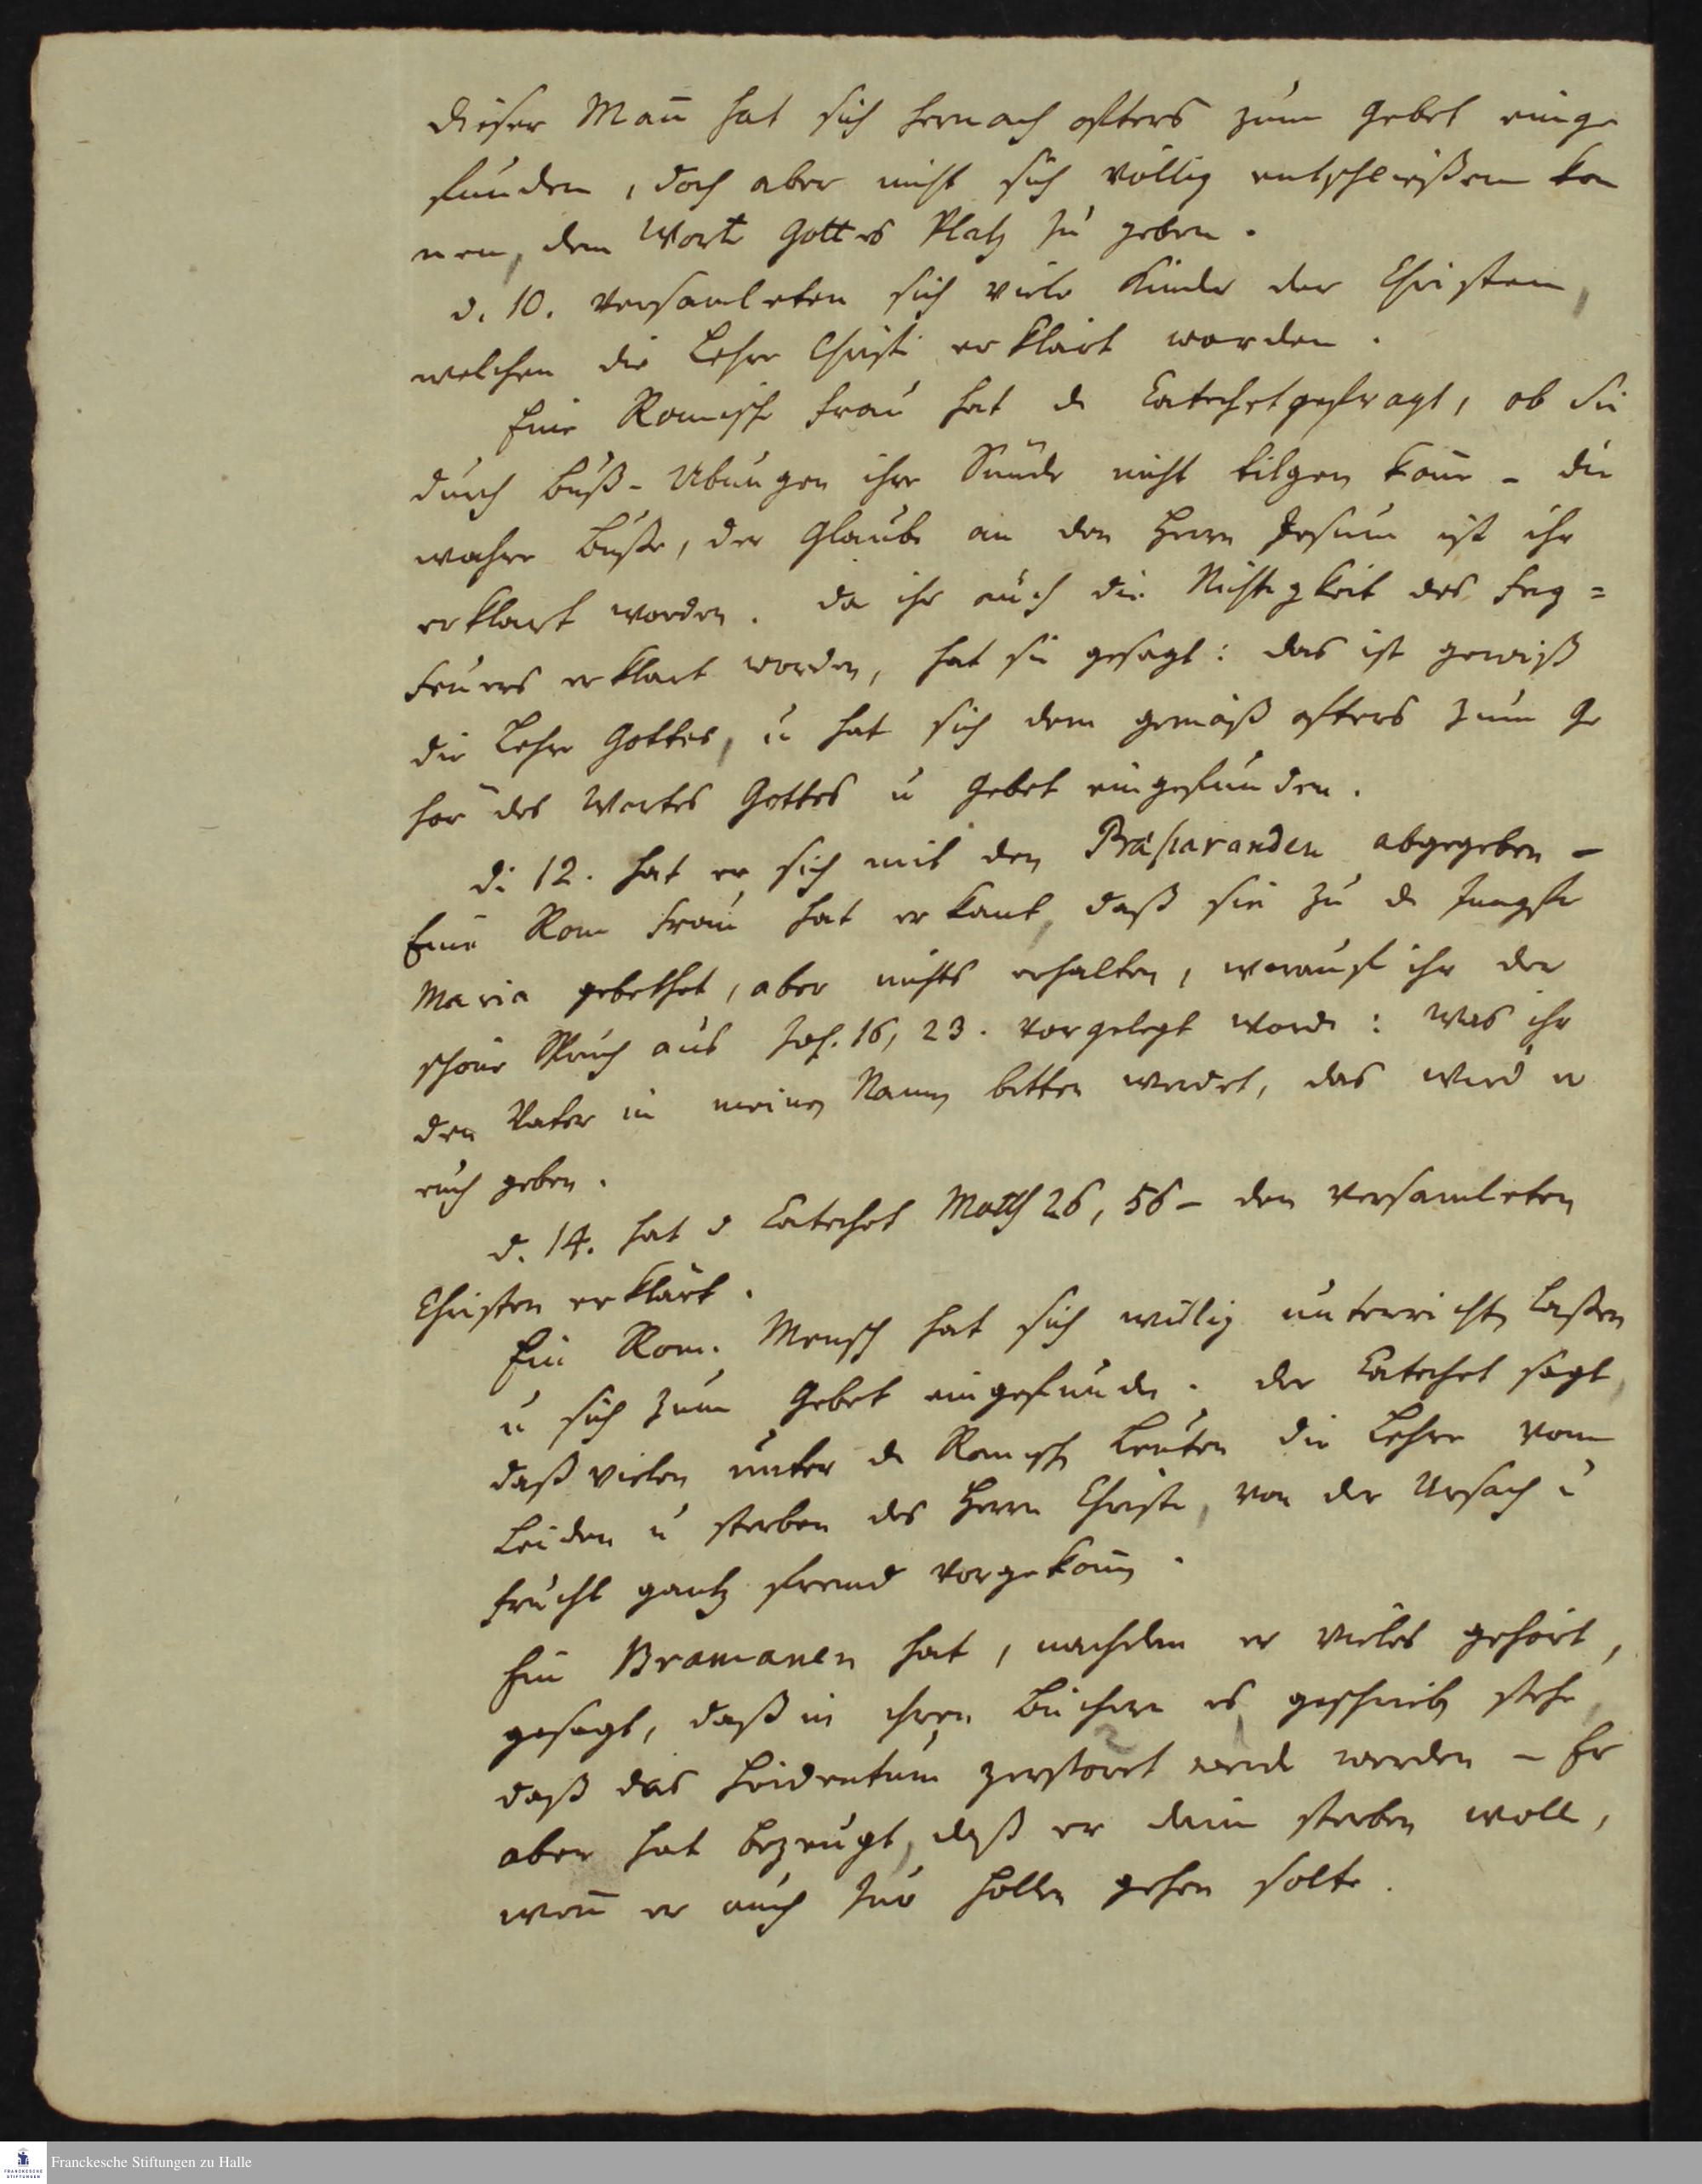 Dieser Mañ hat sich hernach öfters zum Gebet einge
funden, doch aber nicht sich völlig entschließen kön
nen, dem Worte Gottes Platz zu geben.
d. 10. versamleten sich viele Kinder der Christen,
welchen die Lehre Christi erklärt worden.
Eine Römische Frau hat d Catechet gefragt, ob sie
durch Buß-Übungen ihre Sünde nicht tilgen köñe - die
wahre Buße, der Glaube an den Herrn Jesum ist ihr
erklärt worden. Da ihr auch die Nichtigkeit des Feg=
feuers erklärt worden, hat sie gesagt: das ist gewiß
die Lehre Gottes, u hat sich dem gemäß öfters zum Ge
hör des Wortes Gottes u Gebet eingefunden.
d. 12. hat er sich mit den Præparanden abgegeben -
Eine Röm Frau hat erkant, daß sie zu d Jungfr
Maria gebethet, aber nichts erhalten, worauf ihr der
schöne Spruch aus Joh. 16, 23. vorgelegt worde: Was ihr
den Vater in meinen Namen bitten werdet, das wird er
euch geben.
d. 14. hat d Catechet Matth 26, 56 - den versamleten
Christen erklärt.
Ein Röm. Mensch hat sich willig unterrichten laßen
u sich zum Gebet eingefunden. Der Catechet sagt,
daß vielen unter d Römischen Leuten die Lehre vom
Leiden u sterben des Herrn Christi, von der Ursach u
Frucht gantz fremd vorgekom̃en.
Ein Bramanen hat, nachdem er vieles gehört,
gesagt, daß in ihren Büchern es geschrieben stehe,
daß das Heidentum zerstöret werde werden - Er
aber hat bezeugt, daß er darin sterben wolle,
weñ er auch zur Höllen gehen solte.
Franckesche Stiftungen zu Halle